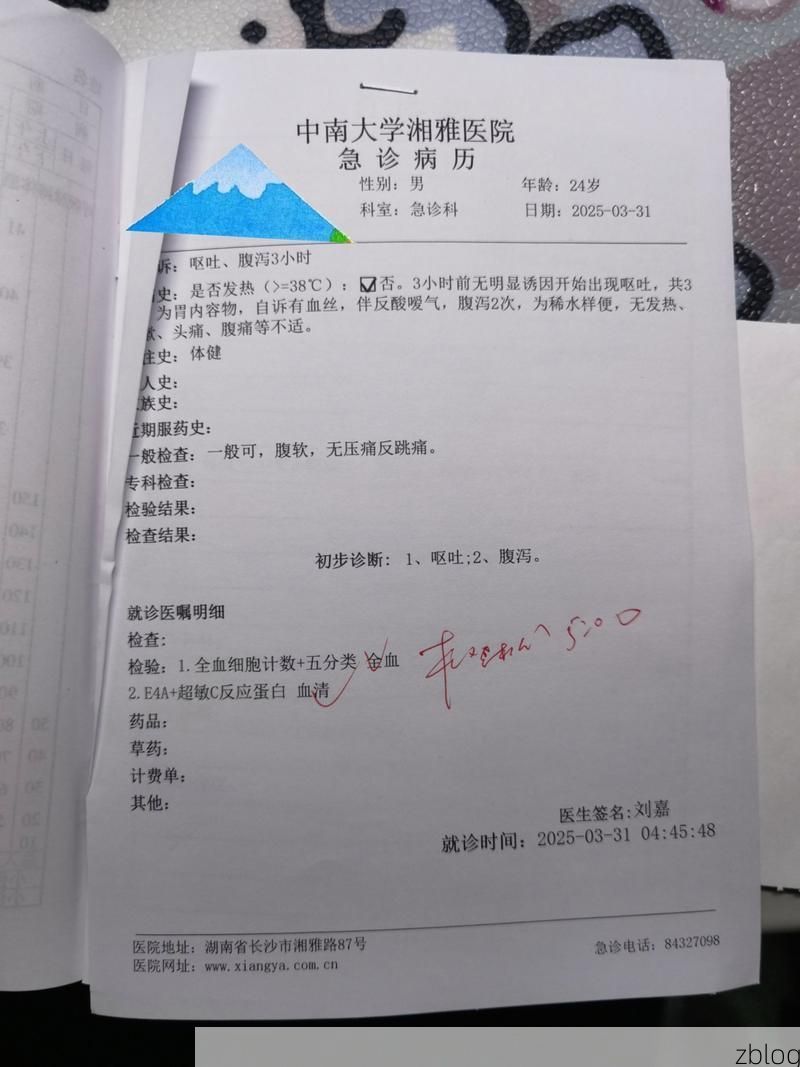 中南大学湘雅医院
急诊病历
性别：男 年龄：24岁
科室：急诊科 日期：2025-03-31
诉：呕吐、腹泻3小时
史：是否发热（>=38℃）：☑否。3小时前无明显诱因开始出现呕吐，共3
为胃内容物，自诉有血丝，伴反酸嗳气，腹泻2次，为稀水样便，无发热、
、头痛、腹痛等不适。
往史：体健
人史：
族史：
近期服药史：
一般检查：一般可，腹软，无压痛反跳痛。
专科检查：
检验结果：
检查结果：
初步诊断: 1、呕吐;2、腹泻。
就诊医嘱明细
检查:
检验：1.全血细胞计数+五分类 全血
2.E4A+超敏C反应蛋白 血清
5:00
药品：
草药：
计费单：
其他：
医生签名:刘嘉
就诊时间：2025-03-31 04:45:48
医院地址：湖南省长沙市湘雅路87号 急诊电话：84327098
医院网址：www.xiangya.com.cn
zblog